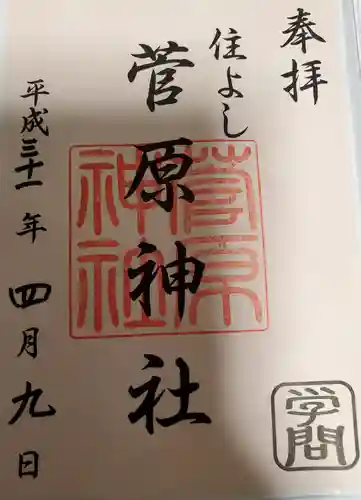 奉拝
学問
住よし
菅原神社
菅原神社
平成三十一年四月九日